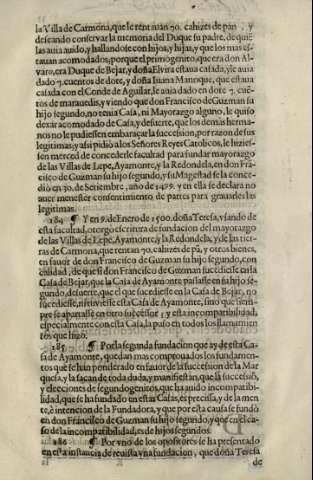 la Villa de Carmona, que le rentauan 70. cahizes de pan, y
desseando conseruar la memoria del Duque su padre, de quié
las auia auido, y hallandose con hijos, y hijas, y que los mas es-
tauan acomodados, porque el primogenito, que era don Al-
varo, era Duque de Bejar, y doña Eluira estaua casada, y le auia
dado 7. cuentos de dote, y doña Iuana Manrique, que estaua
casada con el Conde de Aguilar, le auia dado en dote 7. cué-
tos de marauedis, y viendo que don Francisco de Guzman su
hijo segundo, no tenia Casa, ni Mayorazgo alguno, le quiso
dexar acomodado de Casa, y de suerte, que los demàs herma-
nos no le pudiessen embaraçar la succession, por razon de sus
legitimas; y assi pidiò a los Señores Reyes Catolicos, le hizies-
sen merced de concederle facultad para fundar mayorazgo
de las Villas de Lepe, Ayamonte, y la Redondela, en don Fran-
cisco de Guzman su hijo segundo, y su Magestad se la conce-
diò en 30. de Setiembre, año de 1479. y en ella se declara no
auer menester consentimiento de partes para grauarles las
legitimas.
184 ¶ Y en 9. de Enero de 1500. doña Teresa, vsando de
esta facultad, otorgò escritura de fundacion del mayorazgo
de las Villas de Lepe, Ayamonte, y la Redondela, y de las tier-
ras de Carmona, que rentan 70. cahizes de pá, y otros bienes,
en fauor de don Francisco de Guzman su hijo segundo, con
calidad, de que si don Francisco de Guzman succediesse en la
Casa de Bejar, que la Casa de Ayamonte passasse en su hijo se-
gundo, de suerte, que el que succediesse en la Casa de Bejar, no
succediesse, ni estuuiesse esta Casa de Ayamonte, sino que siem-
pre se apartasse en otro successor: y esta incompatibilidad,
especialmente con esta Casa, la puso en todos los llamamien
tos que hizo.
185 ¶ Por la segunda fundacion que ay de esta Ca-
sa de Ayamonte, quedan mas comprouados los fundamen-
tos que se han ponderado en fauor de la succession de la Mar
quesa, y la sacan de toda duda, y manifiestan, que la succession,
y elecciones de segundogenitos, que ha auido incompatibi-
lidad, que se ha fundado en estas Casas, es precisa, y de la men-
te, è intencion de la Fundadora, y que por esta causa se fundò
en don Francisco de Guzman su hijo segundo, y que en el ca-
so de la incompatibilidad, es de hijos segundos.
186 ¶ Por vno de los opositores se ha presentado
en esta instancia de reuista vna fundacion, que doña Teresa
de